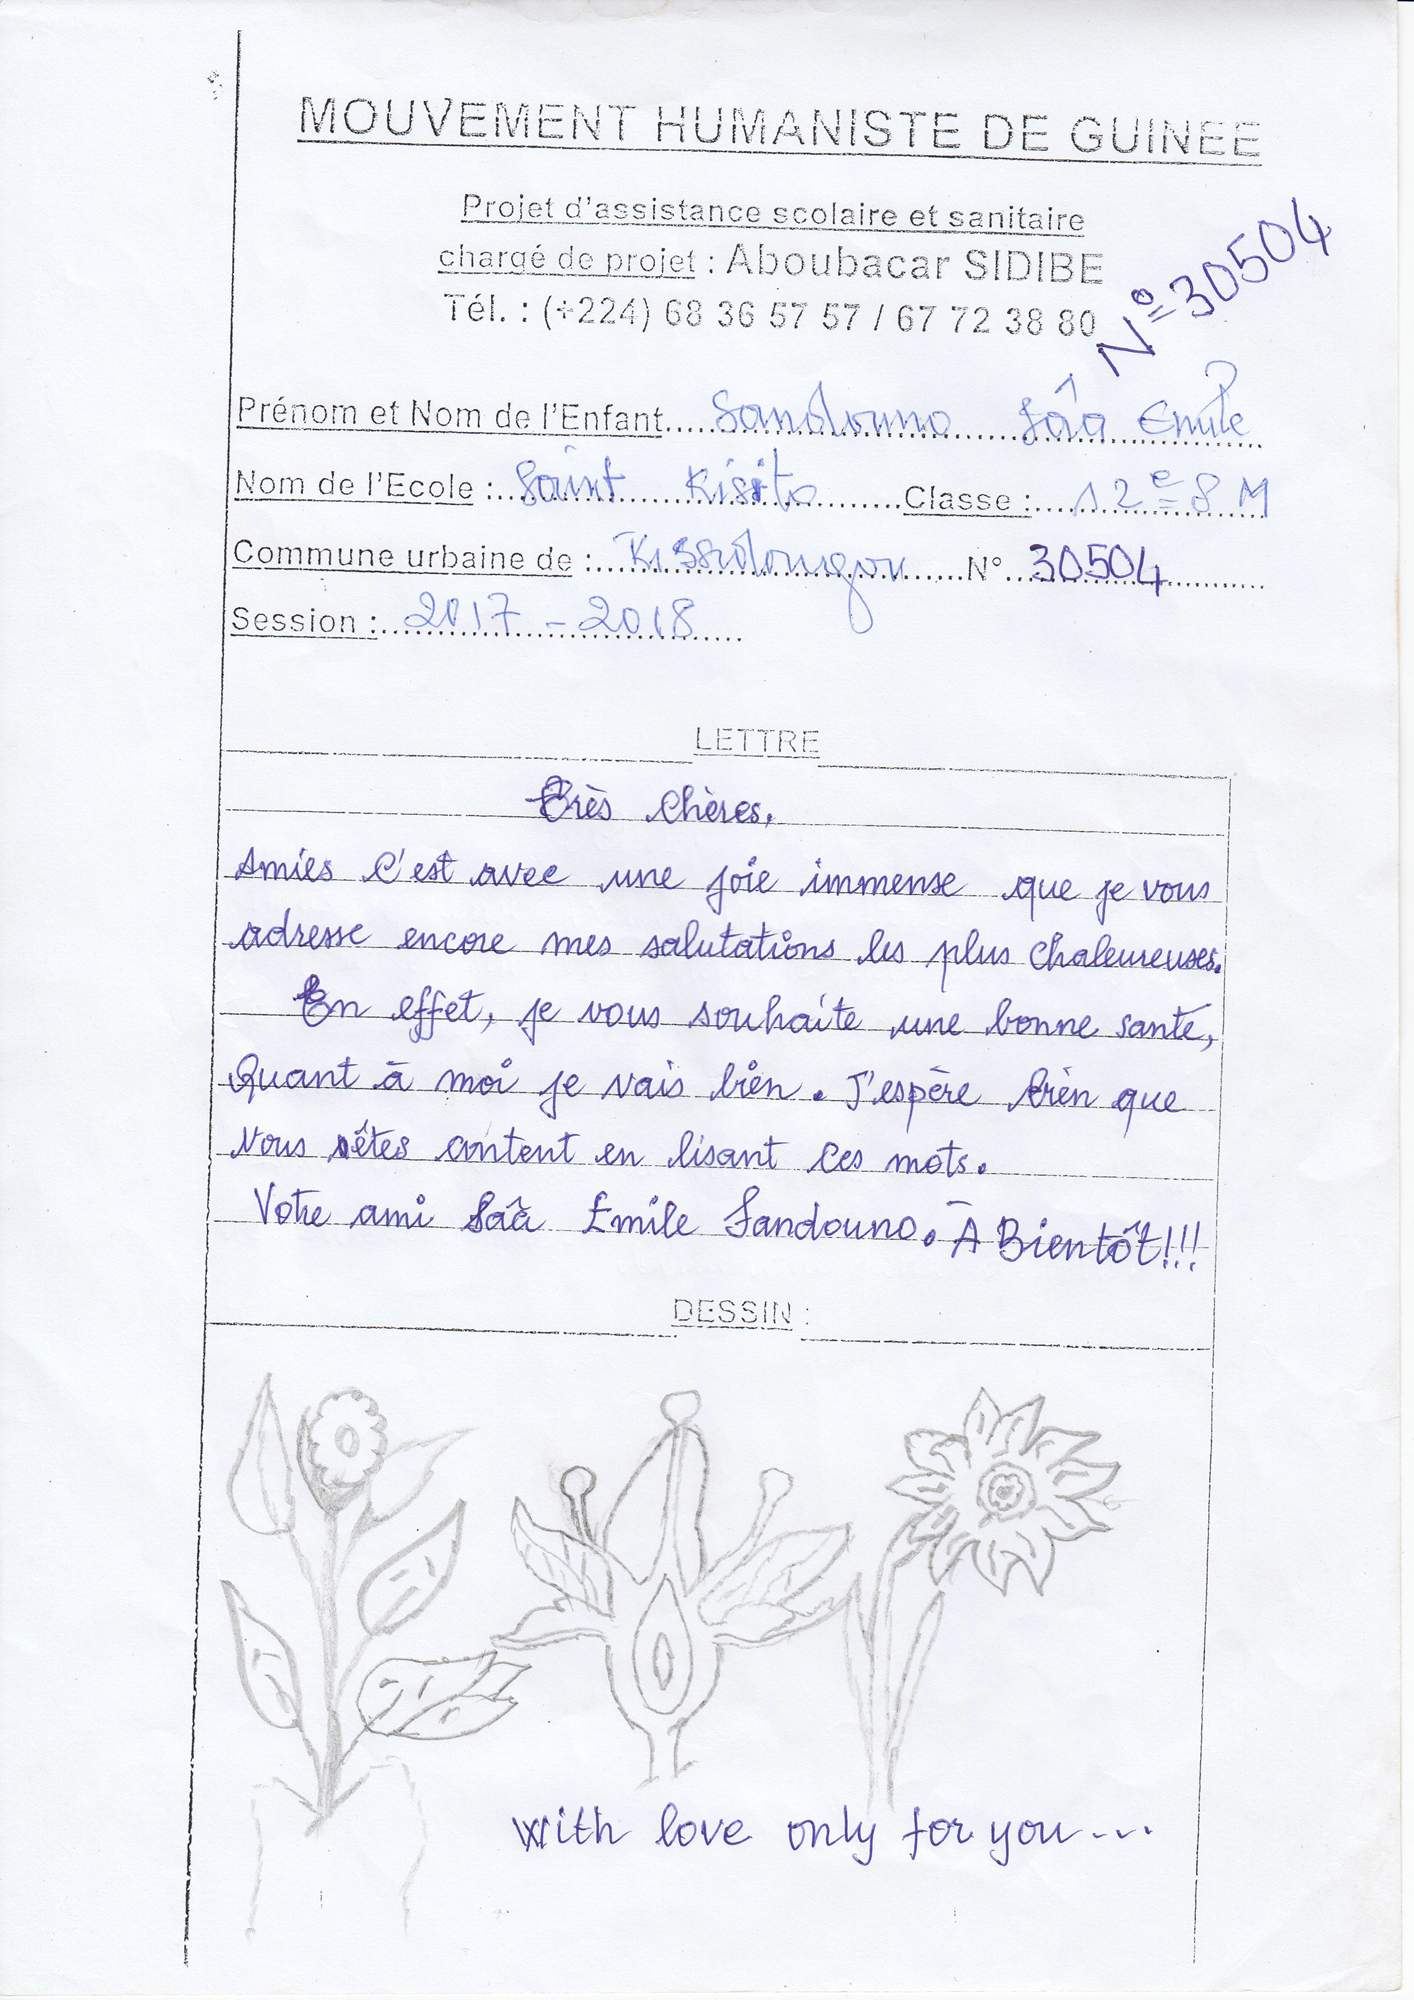 MOUVEMENT HUMANISTE DE GUINEE
Projet d'assistance scolaire et sanitaire
chargé de projet : Aboubacar SIDIBE
Tél. : (+224) 68 36 57 57 / 67 72 38 80
N° 30504
Prénom et Nom de l'Enfant..... Sandouno Sâa Emile
Nom de l'Ecole :..... Saint Kisito ..... Classe :..... 12e S M
Commune urbaine de :..... Kissidougou ..... N°..... 30504
Session :..... 2017 - 2018
LETTRE
Très Chères,
Amies C'est avec une joie immense que je vous
adresse encore mes salutations les plus Chaleureuses.
En effet, je vous souhaite une bonne santé,
Quant à moi je vais bien. J'espère bien que
vous êtes content en lisant ces mots.
Votre ami Sâa Emile Sandouno. À Bientôt!!!
DESSIN :
With love only for you...